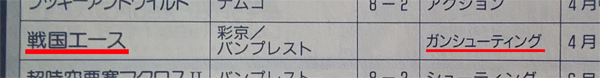 ラッキーアンドワイルド ナムコ 8-2 アクション 4月
戦国エース 彩京／バンプレスト ガンシューティング 4月
超時空要塞マクロスⅡ バンプレスト 8-2 シューティング